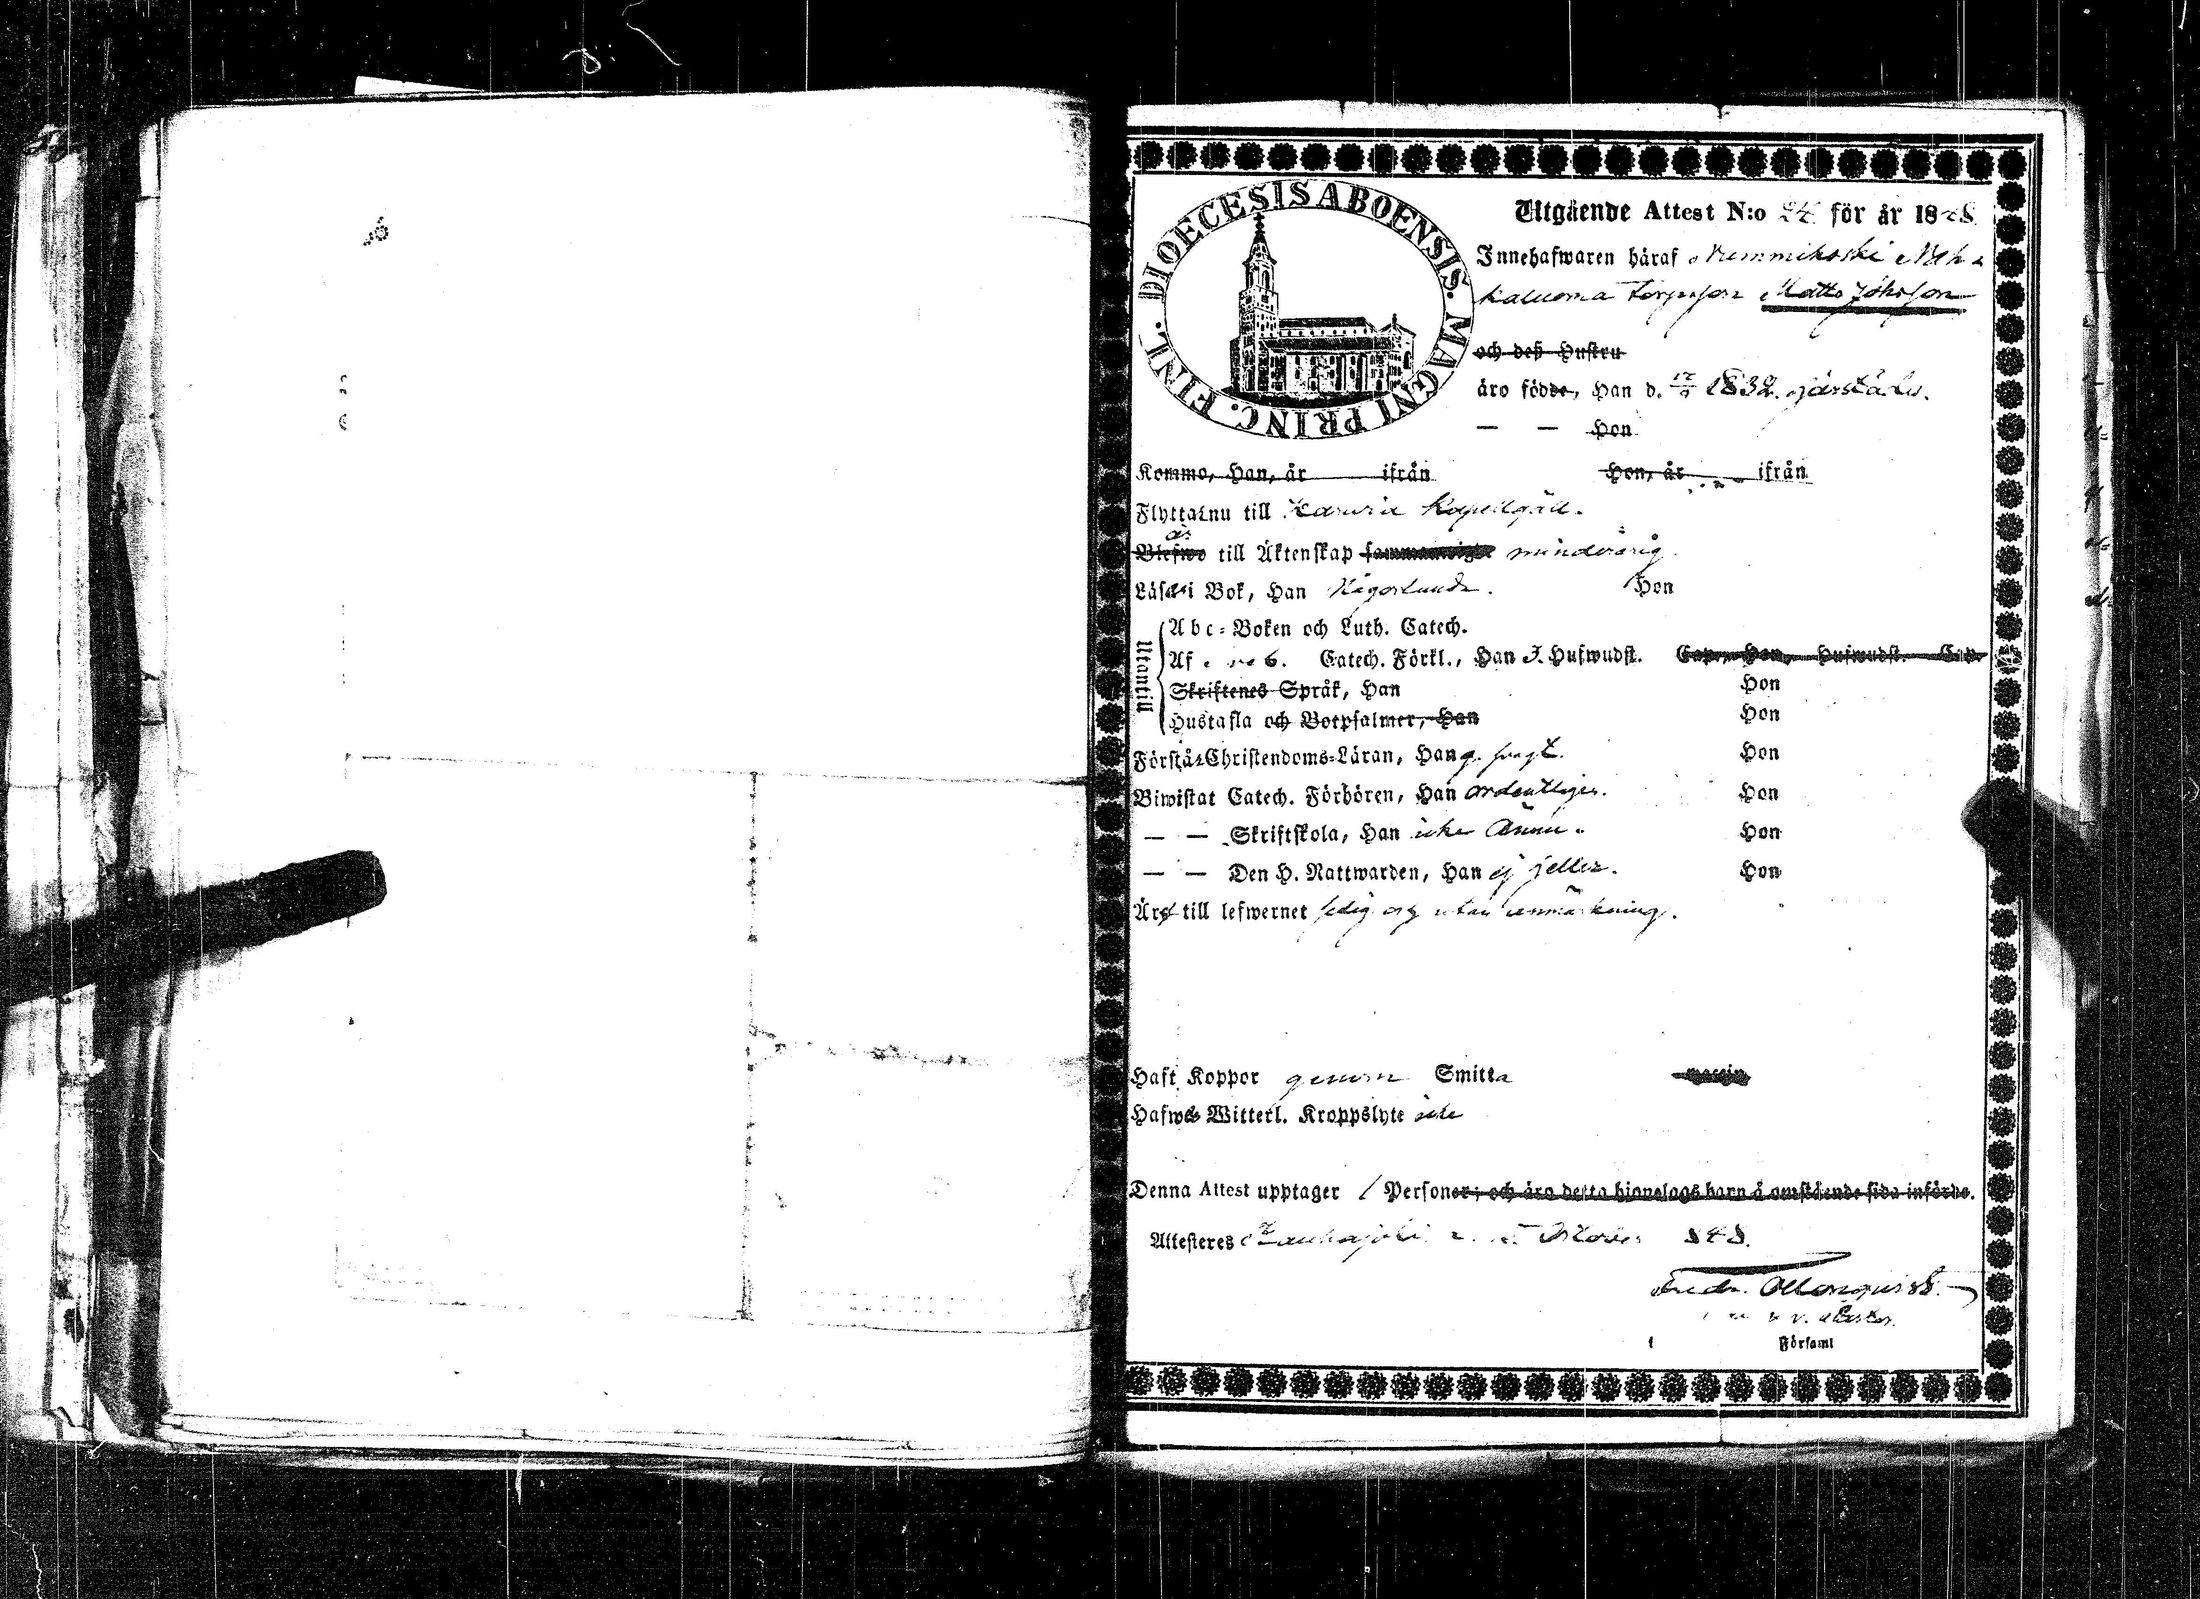 DIOECESIS ABOENSIS. MAGNI PRINC. FINL.
Utgående Attest N:o 24 för år 1848.
Innehafwaren häraf Nummikoski
kaluoma torpsson Matts Johsson
och deß Hustru
äro födde, Han d. 1832. härstädes.
— — Hon
Kommo, Han, år ifrån Hon, år ifrån
Flytta nu till Karvia Kapellgäll.
är
Blefwo till Äktenskap minderårig.
Läsa i Bok, Han någorlunda. Hon
Utantill
Abc-Boken och Luth. Catech.
Af Catech. Förkl., Han 3. Hufwudst. Cap., Hon, Hufwudst. Cap.
Skriftenes Språk, Han Hon
Hustafla och Botpsalmer, Han Hon
Förstå Christendoms-Läran, Han g. svagt. Hon
Biwistat Catech. Förhören, Han ordentligen. Hon
— — Skriftskola, Han icke ännu. Hon
— — Den H. Nattwarden, Han ej heller. Hon
Äro till lefwernet sedig och utan anmärkning.
Haft Koppor genom Smitta
Hafwa Witterl. Kroppslyte icke
Denna Attest upptager 1 Personer; och äro detta hjonelags barn å omstående sida införde.
Attesteras Kauhajoki October 1848.
Fredr.
Församl